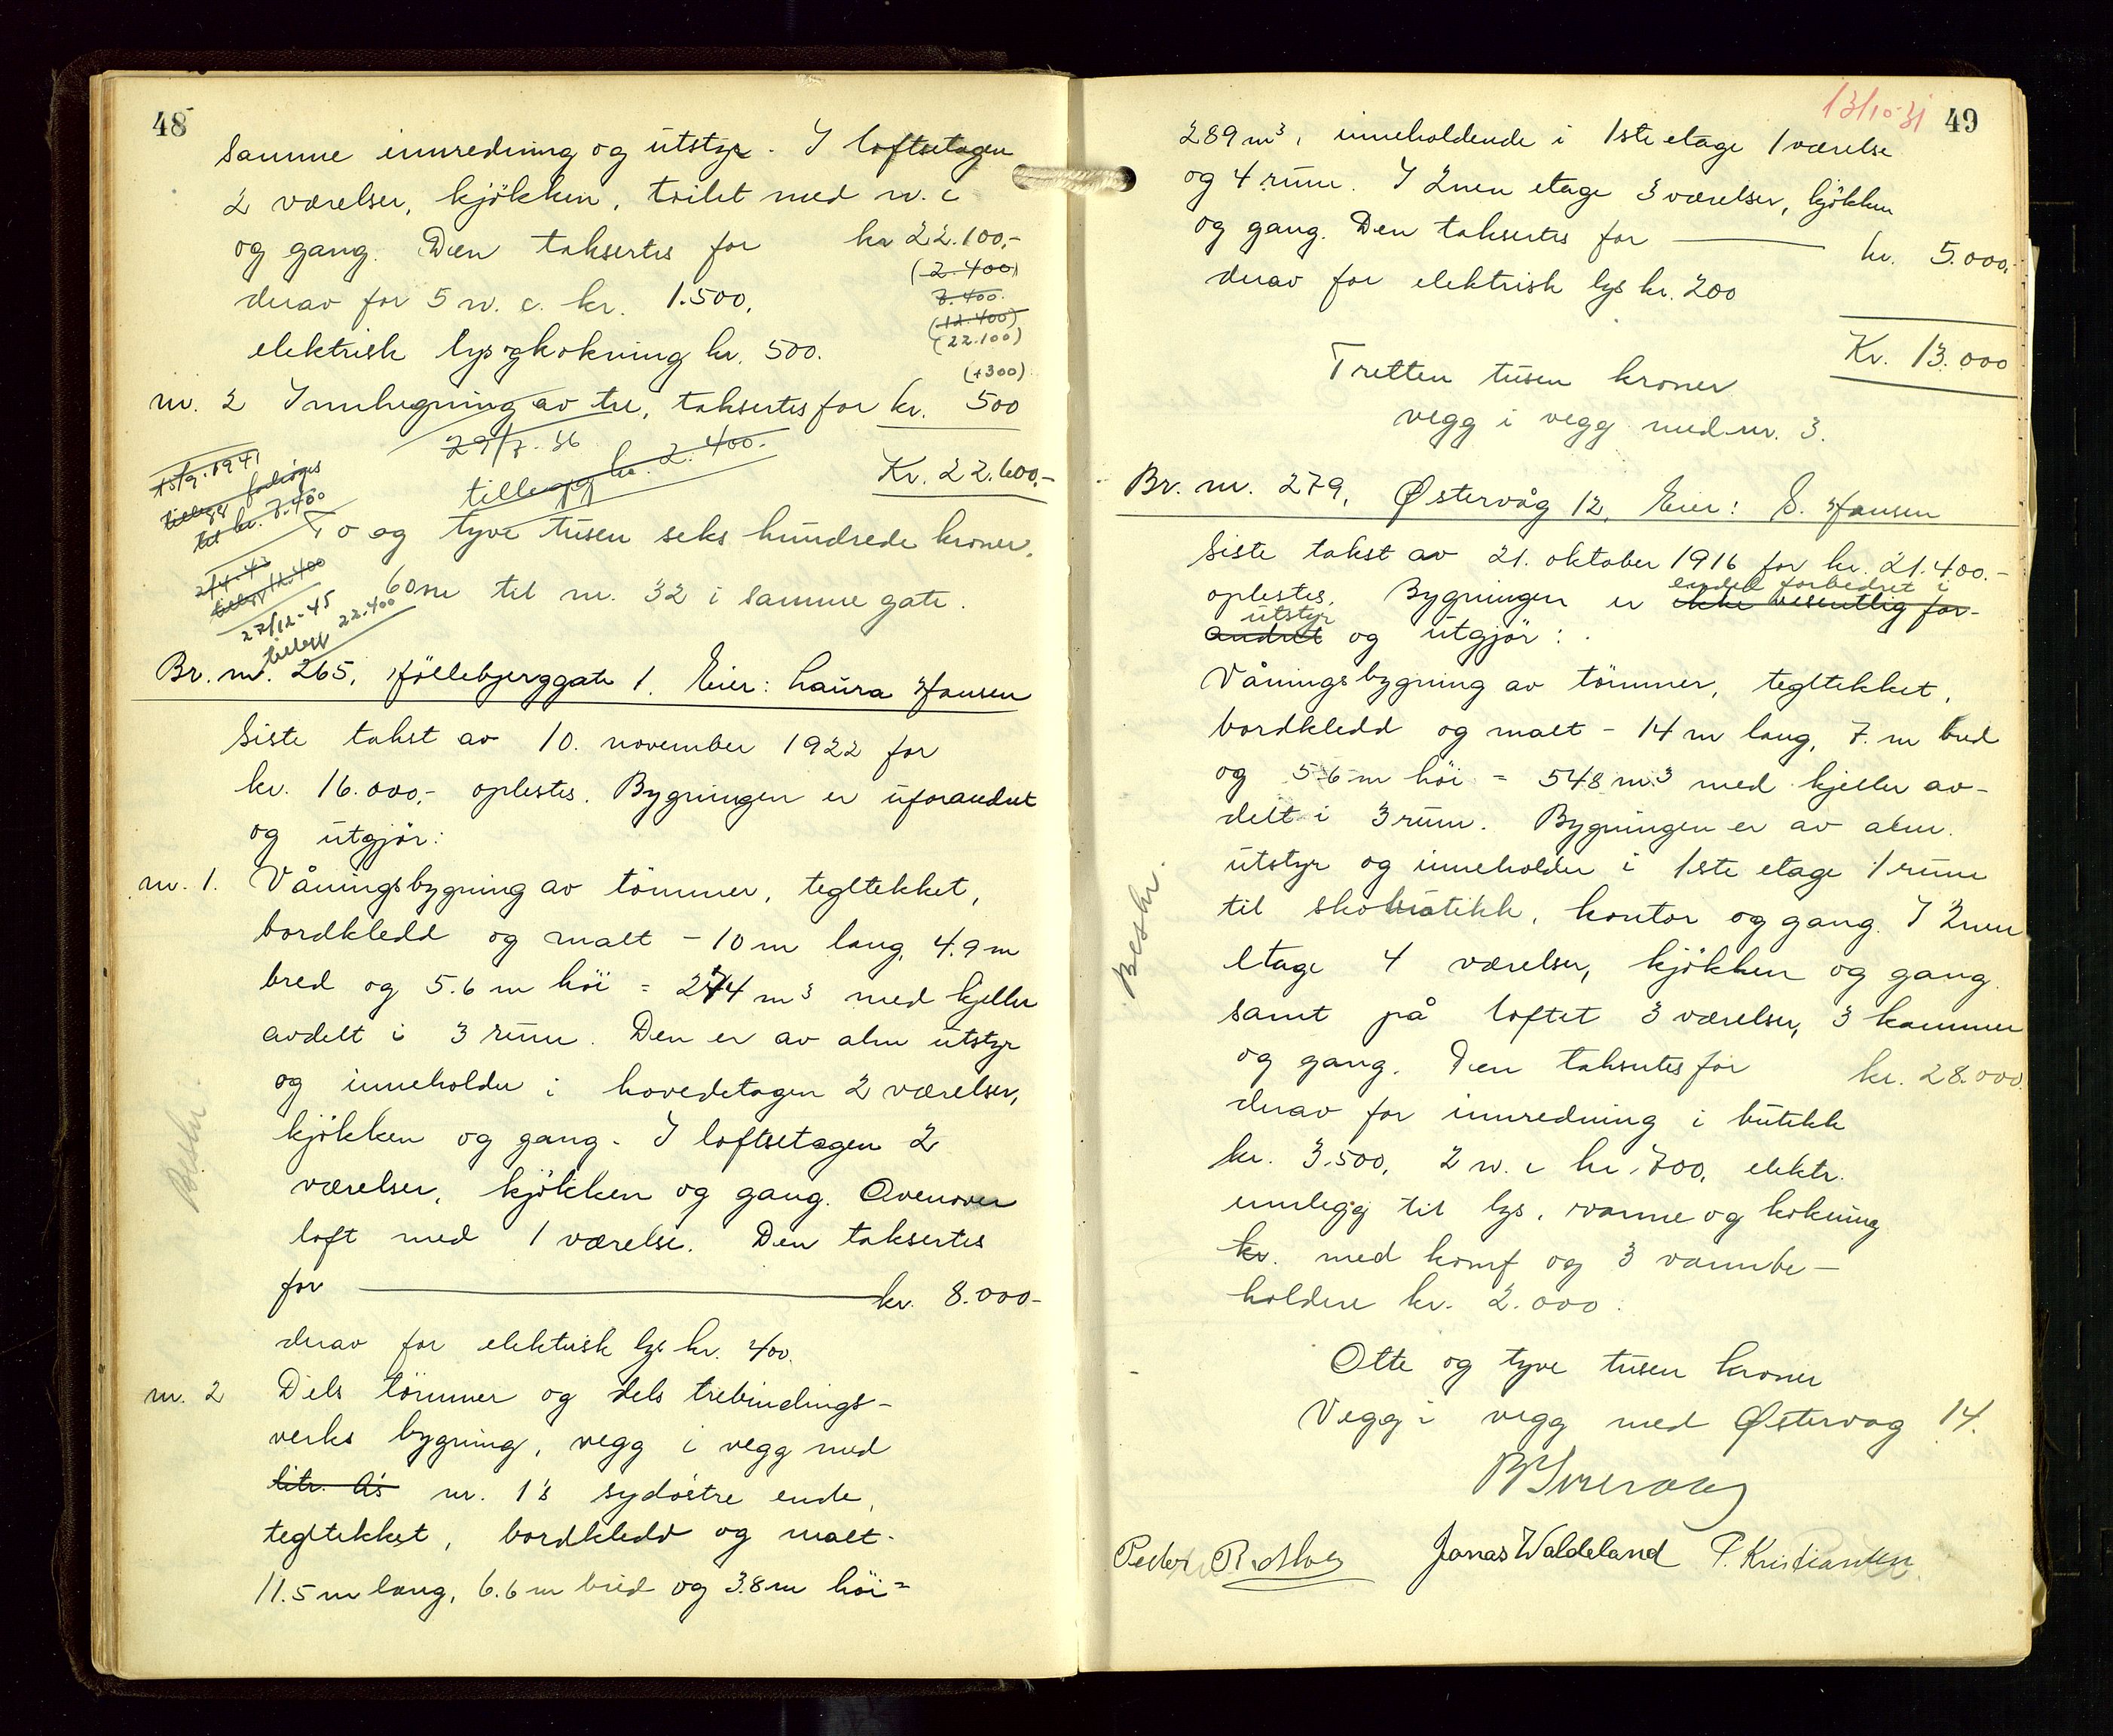 48
samme innredning og utstyr. I loftsetagen
2 værelser, kjökken, toilet med w.c
og gang. Den taksertes for kr 22.100,-
(2.400)
derav for 5 w.c. kr. 1.500,
7.400.
(12.400)
(22.100)
elektrisk lys og kokning kr. 500.
(+300)
nr. 2 Innhegning av tre, taksertes for kr. 500
29/7-36
tillegg kr. 2.400.-
Kr. 22.600.-
15/9-1941
tillegg forhöyes
til kr. 7.400
To og tyve tusen seks hundrede kroner.
2/4-43
tillegg 12.400
60m til nr. 32 i samme gate.
27/12-45
tillegg 22.400
Br. nr. 265, Höllebjerggate 1. Eier: Laura Hansen
Siste takst av 10. november 1922 for
kr. 16.000,- oplestes. Bygningen er uforandret
og utgjör:
nr. 1. Våningsbygning av tömmer, tegltekket,
bordkledd og malt - 10 m lang, 4.9 m
bred og 5.6 m höi = 274 m³ med kjeller
avdelt i 3 rum. Den er av alm utstyr
og inneholder i hovedetagen 2 værelser,
kjökken og gang. I loftsetagen 2
værelser, kjökken og gang. Ovenover
loft med 1 værelse. Den taksertes
for kr. 8.000-
derav for elektrisk lys kr. 400.
nr. 2 Dels tömmer og dels trebindings-
verks bygning, vegg i vegg med
litr. A's nr. 1's sydöstre ende,
tegltekket, bordkledd og malt-
11.5 m lang, 6.6 m bred og 3.8 m höi =
Beskr.
13/10-31
49
289 m³, inneholdende i 1ste etage 1 værelse
og 4 rum. I 2nen etage 3 værelser, kjökken
og gang. Den taksertes for kr. 5.000,-
derav for elektrisk lys kr. 200
Kr. 13.000
Tretten tusen kroner
vegg i vegg med nr. 3.
Br. nr. 279, Østervåg 12, Eier: S. Hansen
Siste takst av 21. oktober 1916 for kr. 21.400.-
endel forbedret i
oplestes. Bygningen er ikke vesentlig for-
utstyr
andret og utgjör:
Våningsbygning av tömmer, tegltekket,
bordkledd og malt - 14 m lang, 7. m bred
og 5.6 m höi = 548 m³ med kjeller av-
delt i 3 rum. Bygningen er av alm.
utstyr og inneholder i 1ste etage 1 rum
til skobutikk, kontor og gang. I 2nen
etage 4 værelser, kjökken og gang
samt på loftet 3 værelser, 3 kammer
og gang. Den taksertes for kr. 28.000.
derav for innredning i butikk
kr. 3.500, 2 w.c kr. 700, elektr.
innlegg til lys, varme og kokning
kr. med komf og 3 vannbe-
holdere kr. 2.000.
Otte og tyve tusen kroner
Vegg i vegg med Østervag 14.
Beskr.
Jonas Waldeland P. Kristiansen